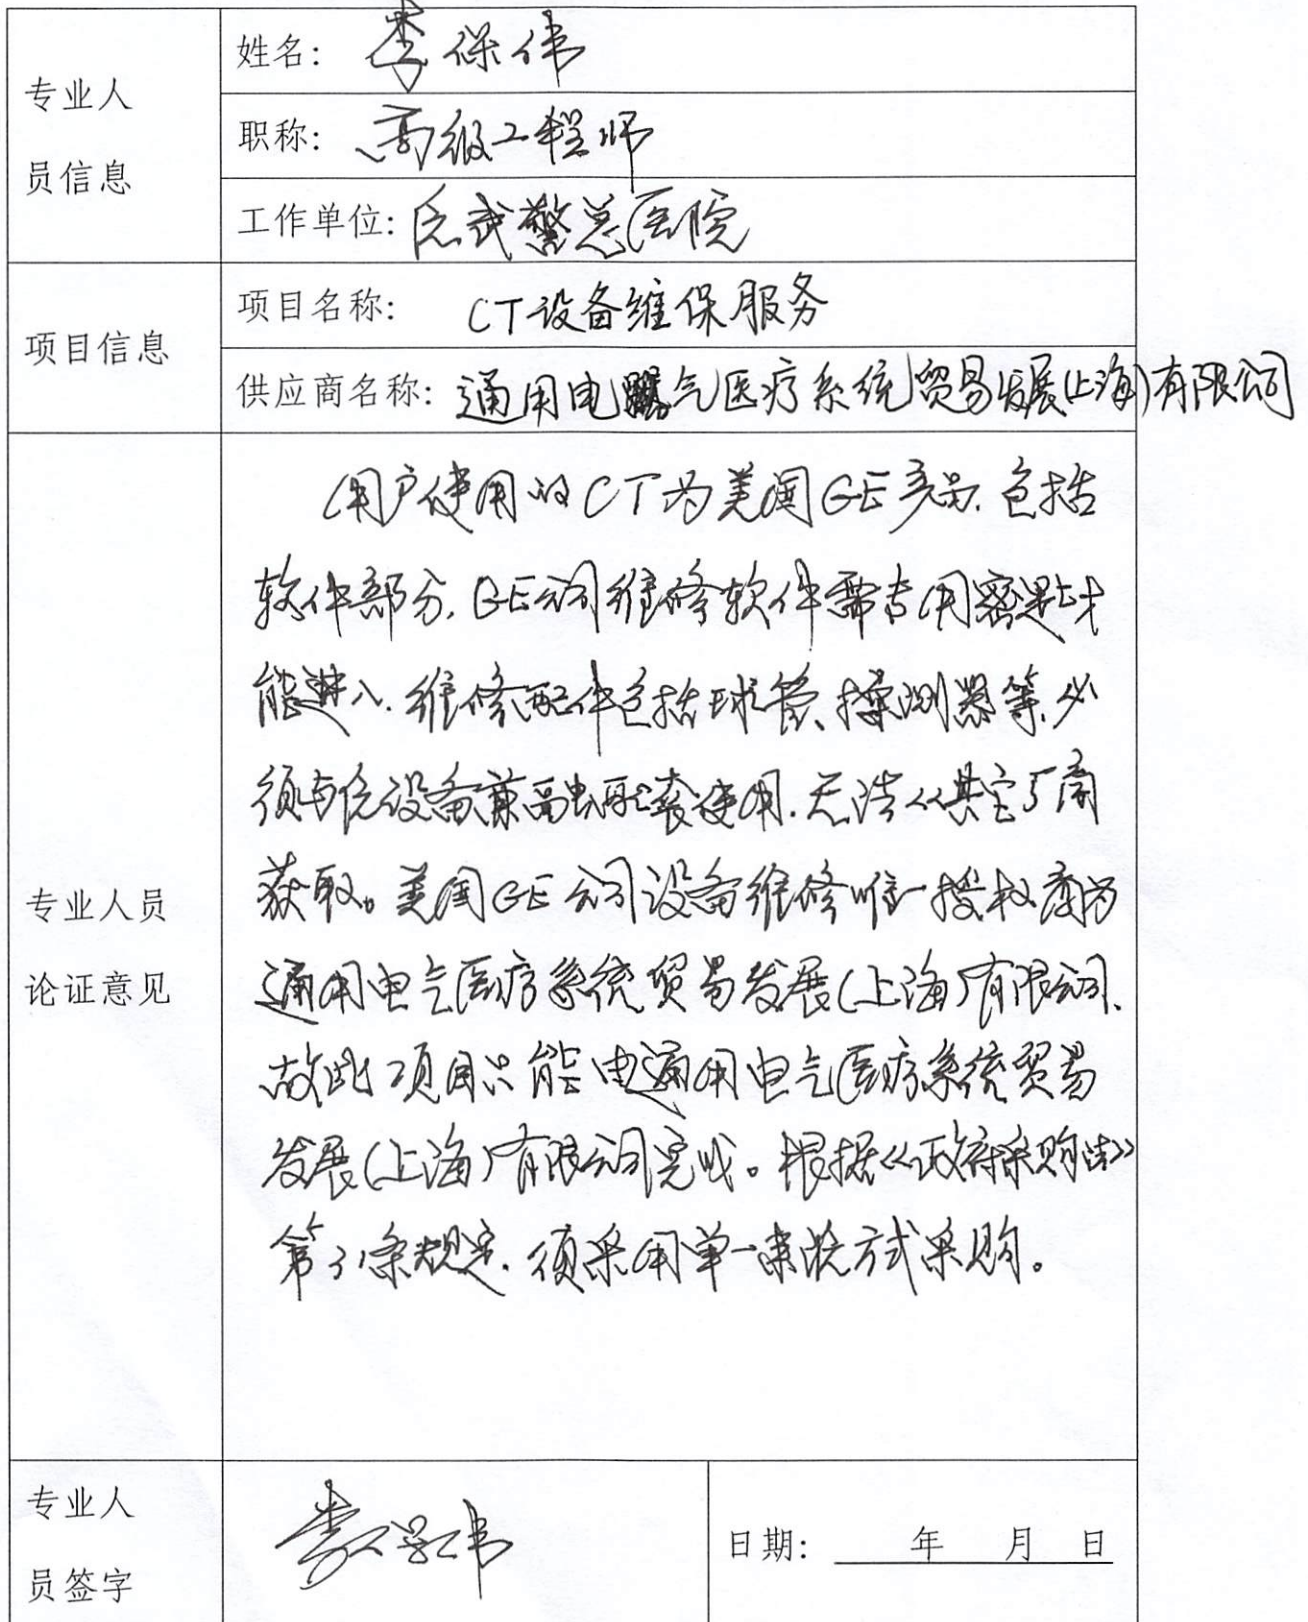 姓名: 李保伟
专业人
员信息
职称: 高级工程师
工作单位: 武警总医院
项目信息
项目名称: CT设备维保服务
供应商名称: 通用电气医疗系统贸易发展(上海)有限公司
专业人员
论证意见
用户使用的CT为美国GE产品,包括
软件部分,GE公司维修软件需专用密匙才
能进入.维修配件包括球管、探测器等,必
须与设备兼配套使用.无法从其它厂商
获取。美国GE公司设备维修唯一授权商为
通用电气医疗系统贸易发展(上海)有限公司,
故此项目只能由通用电气医疗系统贸易
发展(上海)有限公司完成。根据《政府采购法》
第31条规定,须采用单一来源方式采购。
专业人
员签字
李保伟
日期: 年 月 日